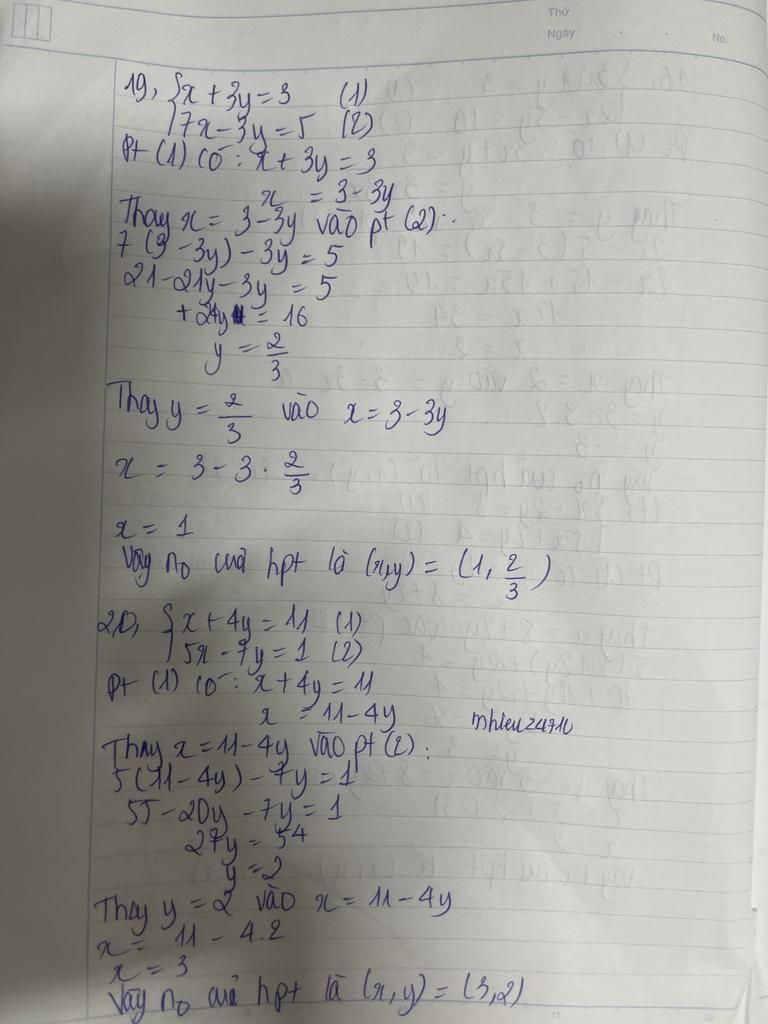 Thứ
Ngày
No.
19, { x + 3y = 3 (1)
7x - 3y = 5 (2)
Pt (1) có: x + 3y = 3
x = 3 - 3y
Thay x = 3 - 3y vào pt (2):
7 (3 - 3y) - 3y = 5
21 - 21y - 3y = 5
+ 24y = 16
y = 2/3
Thay y = 2/3 vào x = 3 - 3y
x = 3 - 3 . 2/3
x = 1
Vậy no của hpt là (x,y) = (1, 2/3)
20, { x + 4y = 11 (1)
5x - 7y = 1 (2)
Pt (1) có: x + 4y = 11
x = 11 - 4y
Thay x = 11 - 4y vào pt (2):
5(11 - 4y) - 7y = 1
55 - 20y - 7y = 1
27y = 54
y = 2
Thay y = 2 vào x = 11 - 4y
x = 11 - 4.2
x = 3
Vậy no của hpt là (x,y) = (3,2)